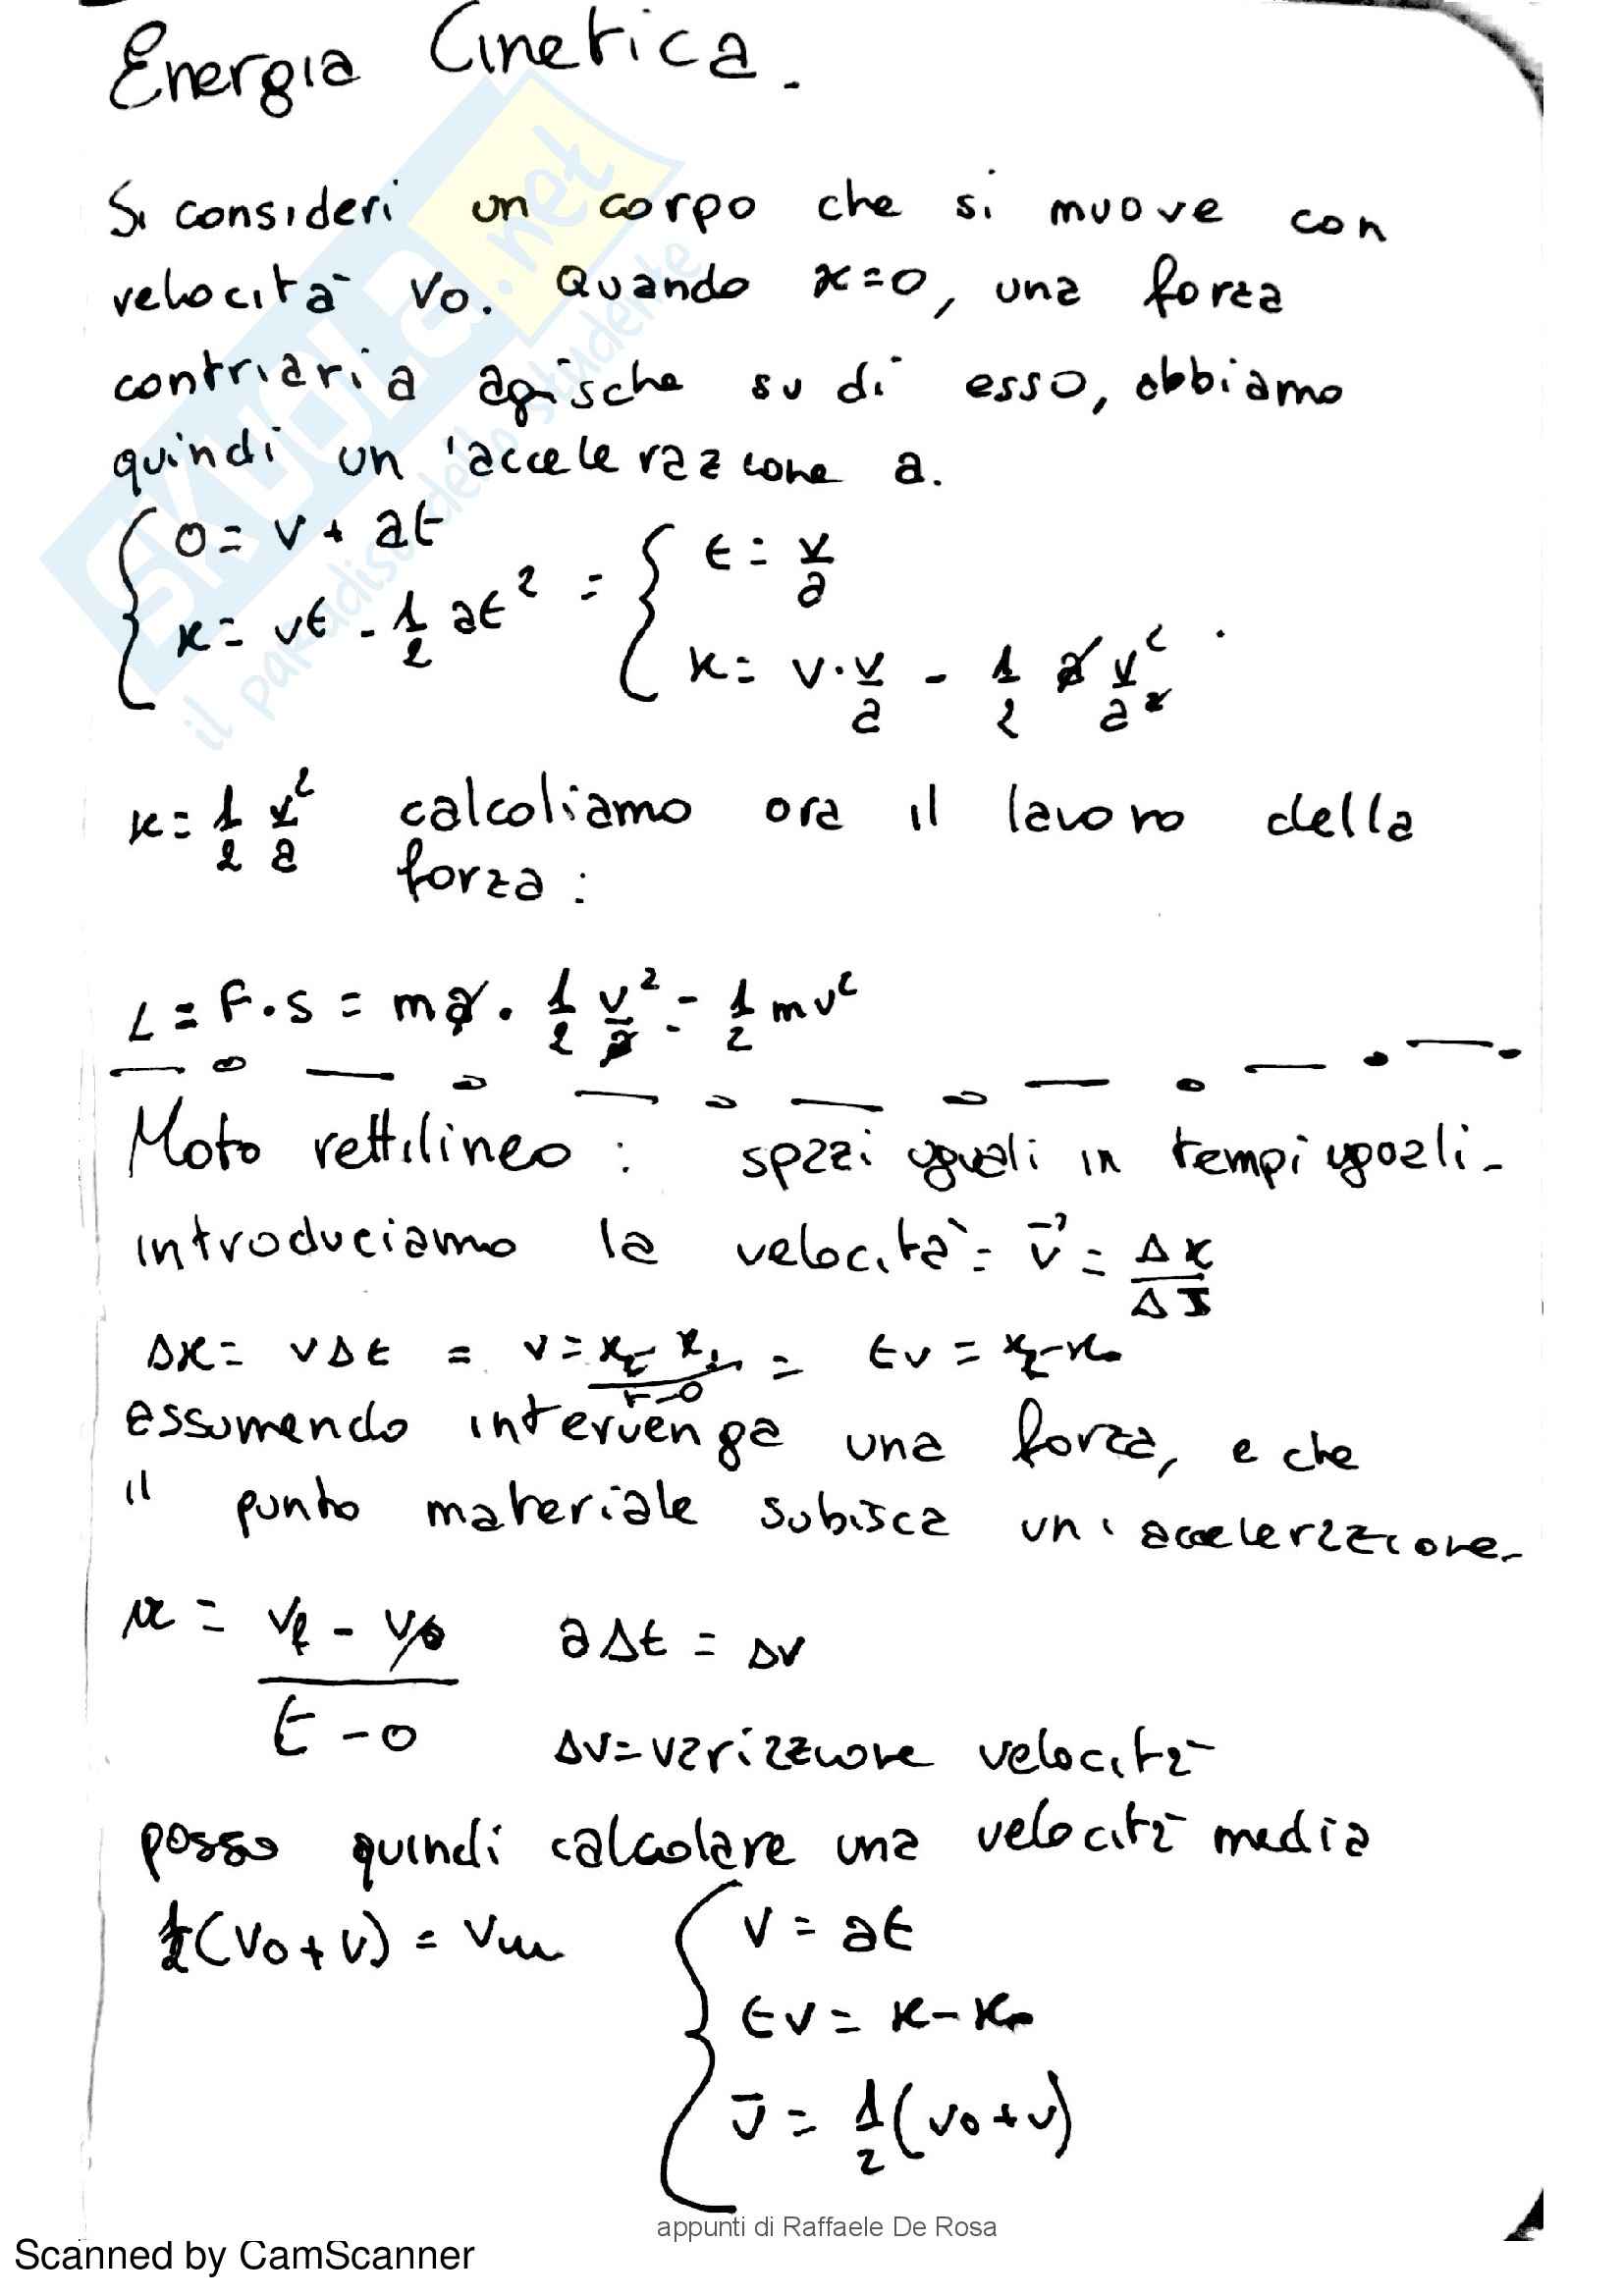 Energia Cinetica.
Si consideri un corpo che si muove con
velocità v0. Quando x=0, una forza
contriaria agische su di esso, abbiamo
quindi un'accelerazione a.
{ 0 = v + at
x = vt - 1/2 at² = { t = v/a
x = v · v/a - 1/2 a v²/a²
x = 1/2 v²/a calcoliamo ora il lavoro della
forza:
L = F·s = ma · 1/2 v²/a = 1/2 mv²
Moto rettilineo: spazi uguali in tempi uguali-
introduciamo la velocità = v⃗ = Δx/Δt
Δx = vΔt = v = = tv =
assumendo intervenga una forza, e che
il punto materiale subisca un'accelerazione-
= (vf - v0)/(t - 0) aΔt = Δv
Δv = variazione velocità
posso quindi calcolare una velocità media
1/2(v0+v) = vm { v = at
tv = x - x0
v̄ = 1/2(v0+v)
appunti di Raffaele De Rosa
Scanned by CamScanner
SKUOLA.net
il paradiso dello studente